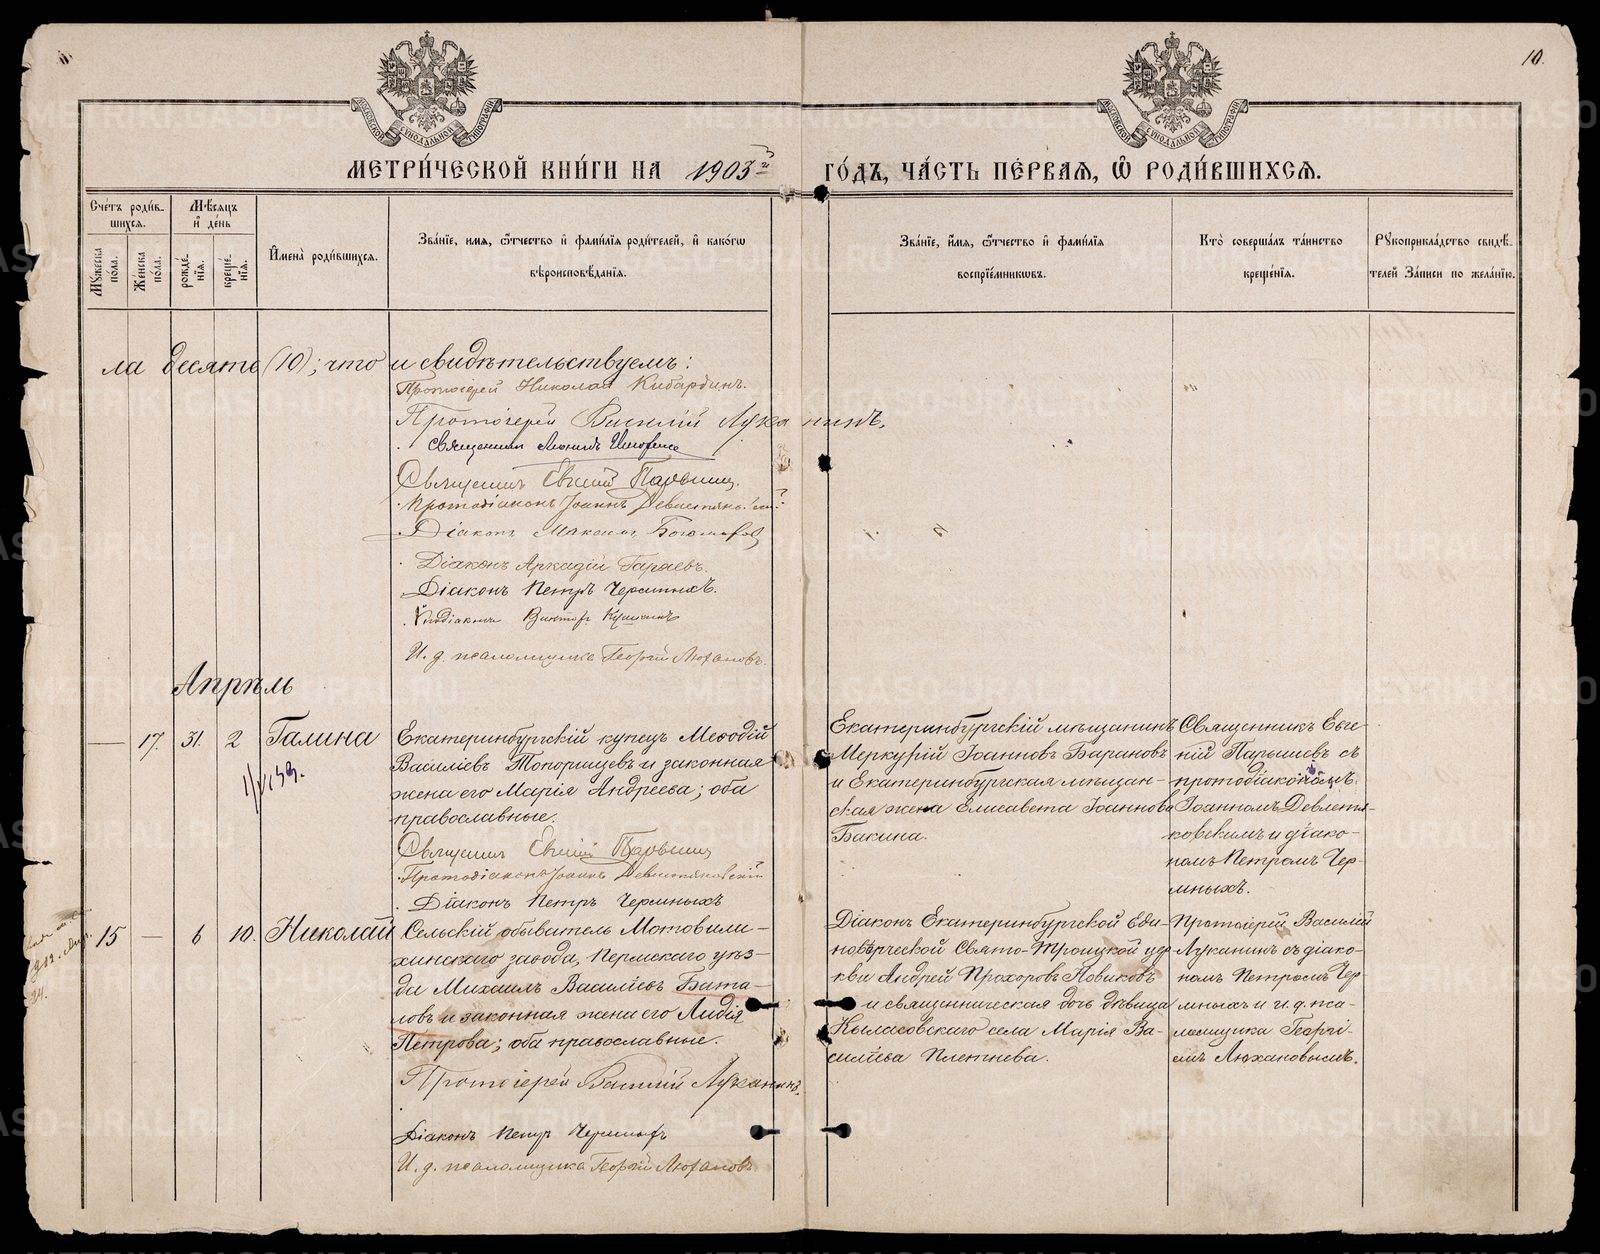 10.
МОСКОВСКОЙ СѴНОДАЛЬНОЙ ТИПОГРАФІИ
МОСКОВСКОЙ СѴНОДАЛЬНОЙ ТИПОГРАФІИ
МЕТРИ́ЧЕСКОЙ КНИ́ГИ НА 1903 й ГО́ДЪ, ЧА́СТЬ ПЕ́РВАЯ, Ѡ҆ РОДИ́ВШИХСЯ.
Сче́тъ роди́в-
шихся.
Мѣ́сяцъ
и҆ де́нь
Мꙋ́жеска по́ла.
Же́нска по́ла.
рожде́-
нїя.
креще́-
нїя.
И҆мена̀ роди́вшихся.
Зва́нїе, имя, ѻ҆́тчество и҆ фами́лїя роди́телей, и҆ како́гѡ
вѣроисповѣ́данїя.
Зва́нїе, и҆́мя, ѻ҆́тчество и҆ фами́лїя
воспрїе́мниковъ.
Кто̀ соверша́лъ та́инство
креще́нїя.
Рꙋкоприкла́дство свидѣ́-
телей За́писи по жела́нїю.
ла десять (10); что и свидѣтельствуемъ:
Протоіерей Николай Кибардинъ.
Протоіерей Василій Луканинъ.
Священникъ
Священникъ Евгеній Парышев
Протодіаконъ Іоаннъ Девлетяковскій
Діаконъ Максимъ
Діаконъ Аркадій Гараевъ.
Діаконъ Петръ Черемныхъ.
Vподіаконъ Викторъ
И. д. псаломщика Георгій Люхановъ.
Апрѣль
— 17. 31. 2 Галина
Екатеринбургскій купецъ Меѳодій
Василіевъ Топорищевъ и законная
жена его Марія Андреева; оба
православные.
Священник Евгеній Парышев
Протодіаконъ Іоаннъ Девлетяковскій
Діаконъ Петръ Черемныхъ
Екатеринбургскій мѣщанинъ
Меркурій Іоанновъ Барановъ
и Екатеринбургская мѣщан-
ская жена Елисавета Іоаннова
Бакина.
Священникъ Евге-
ній Парышевъ съ
протодіакономъ
Іоанномъ Девлетя-
ковскимъ и діако-
номъ Петромъ Чер-
мныхъ.
15 — 6 10. Николай
Сельскій обыватель Мотовили-
хинскаго завода, Пермскаго уѣз-
да Михаилъ Василіевъ Бата-
ловъ и законная жена его Лидія
Петрова; оба православные.
Протоіерей Василій Луканинъ.
Діаконъ Петръ Черемныхъ
И. д. псаломщика Георгій Люхановъ
Діаконъ Екатеринбургской Еди-
новѣрческой Свято-Троицкой цер-
кви Андрей Прохоровъ Новиковъ
и священническая дочь дѣвица
Кыласовскаго села Марія Ва-
силіева Плетнева.
Протоіерей Василій
Луканинъ съ діако-
номъ Петромъ Чер-
мныхъ и и. д. пса-
ломщика Георгі-
емъ Люхановымъ.
METRIKI.GASO-URAL.RU